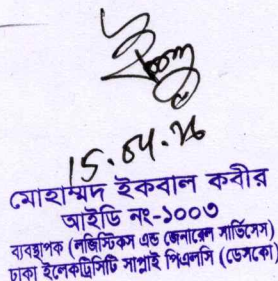 15.04.26
মোহাম্মদ ইকবাল কবীর
আইডি নং-১০০৩
ব্যবস্থাপক (লজিস্টিকস এন্ড জেনারেল সার্ভিসেস)
ঢাকা ইলেকট্রিসিটি সাপ্লাই পিএলসি (ডেসকো)